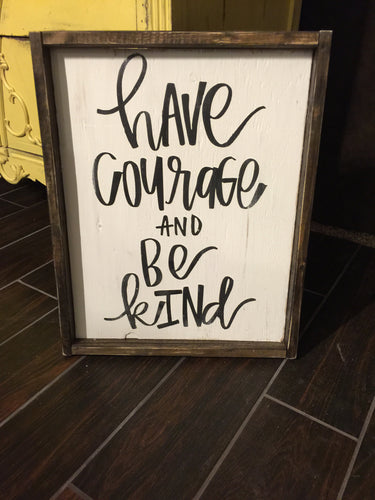 have
courage
AND
Be
kind